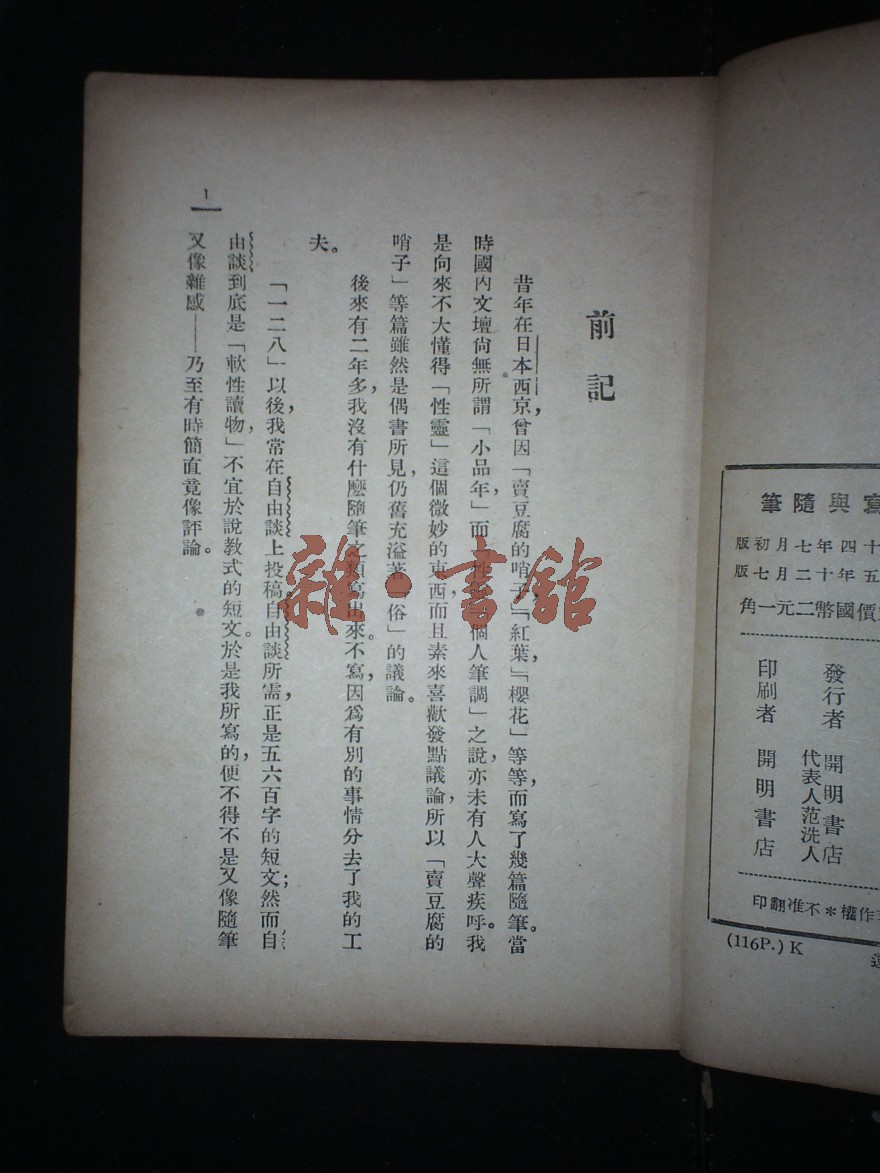 寫與隨筆
十四年七月初版
五年十二月七版
價國幣二元一角
發行者 開明書店
代表人范洗人
印刷者 開明書店
作權＊不准翻印
(116P.) K
前記
昔年在日本西京，曾因「賣豆腐的哨子」「紅葉」「櫻花」等等，而寫了幾篇隨筆。當
時國內文壇尙無所謂「小品年」，而「性個人筆調」之說，亦未有人大聲疾呼。我
是向來不大懂得「性靈」這個微妙的東西，而且素來喜歡發點議論，所以「賣豆腐的
哨子」等篇雖然是偶書所見，仍舊充溢著「俗」的議論。
後來有二年多，我沒有什麼隨筆之類寫出來。不寫，因爲有別的事情分去了我的工
夫。
「一二八」以後，我常在自由談上投稿。自由談所需，正是五六百字的短文；然而自
由談到底是「軟性讀物」，不宜於說教式的短文。於是我所寫的，便不得不是又像隨筆
又像雜感——乃至有時簡直竟像評論。
1
雜·書舘